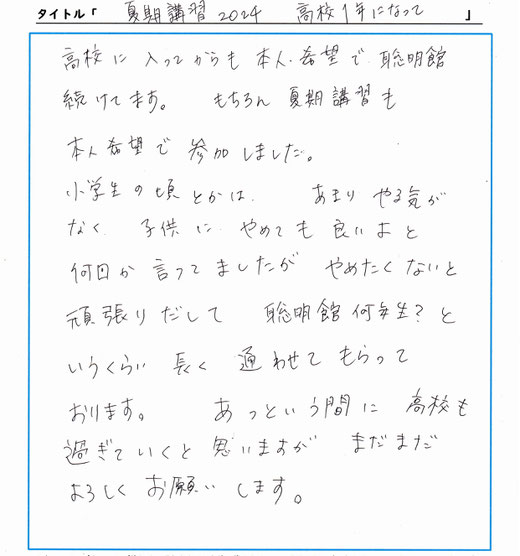 タイトル「 夏期講習 2024 高校1年になって 」
高校に入ってからも本人希望で聡明館
続けてます。 もちろん夏期講習も
本人希望で参加しました。
小学生の頃とかは、 あまりやる気が
なく、子供にやめても良いよと
何回か言ってましたがやめたくないと
頑張りだして 聡明館何年生?と
いうくらい長く通わせてもらって
おります。 あっという間に高校も
過ぎていくと思いますがまだまだ
よろしくお願いします。